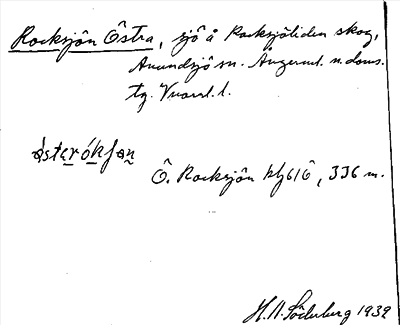 Rocksjön Östra, sjö å Rocksjöliden skog,
Anundsjö sn. Ångerml. n. doms.
tg. Vnorrl. l.
ósterókʃan
Ö. Rocksjön kbl 61 Ö, 336 m.
H. N. Söderberg 1939